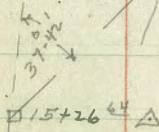 37-42
15+26 64